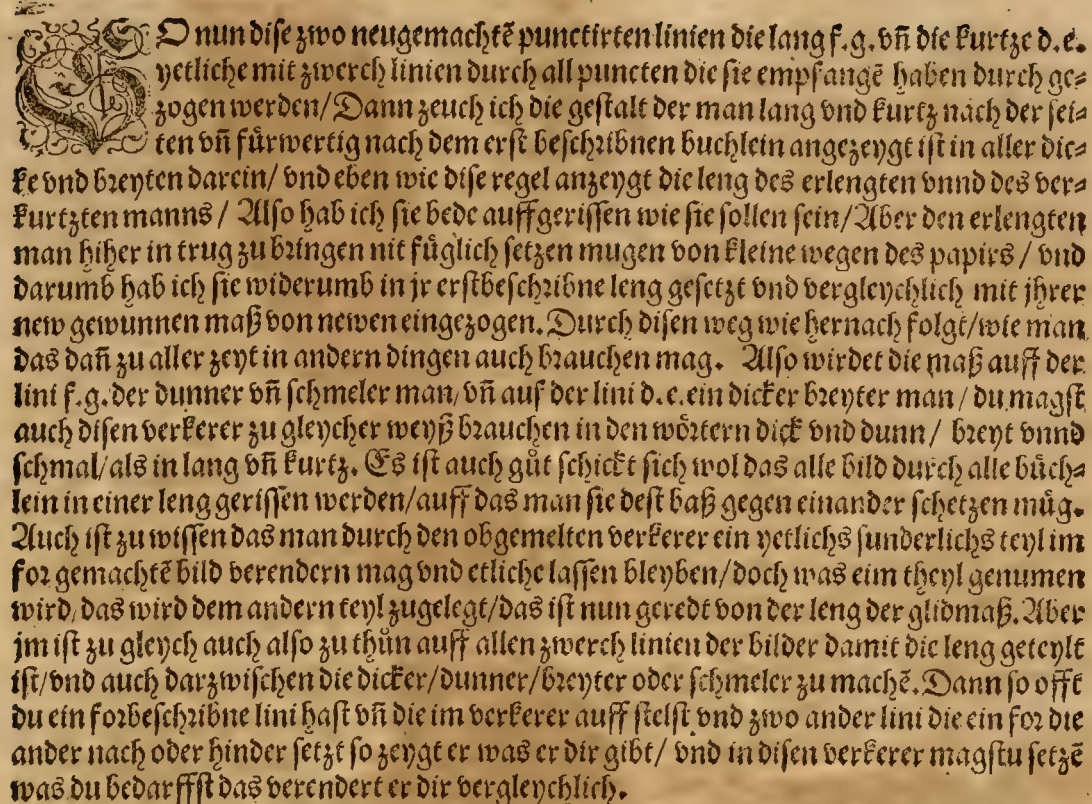 SO nun dise zwo neugemachtē punctirten linien die lang f.g. vñ die kurtze d.e.
yetliche mit zwerch linien durch all puncten die sie empfangē haben durch ge⸗
zogen werden/Dann zeuch ich die gestalt der man lang vnd kurtz nach der sei⸗
ten vñ fürwertig nach dem erst beschribnen buchlein angezeygt ist in aller dic⸗
ke vnd breyten darein/ vnd eben wie dise regel anzeygt die leng des erlengten vnnd des ver⸗
kurtzten manns / Also hab ich sie bede auffgerissen wie sie sollen sein/Aber den erlengten
man hiher in trug zu bringen nit füglich setzen mugen von kleine wegen des papirs / vnd
darumb hab ich sie widerumb in jr erstbeschribne leng gesetzt vnd vergleychlich mit jhrer
new gewunnen maß von newen eingezogen. Durch disen weg wie hernach folgt/wie man
das dañ zu aller zeyt in andern dingen auch brauchen mag. Also wirdet die maß auff der
lini f.g. der dunner vñ schmeler man/ vñ auf der lini d.e. ein dicker breyter man / du magst
auch disen verkerer zu gleycher weyß brauchen in den wörtern dick vnd dunn / breyt vnnd
schmal/als in lang vñ kurtz. Es ist auch gůt schickt sich wol das alle bild durch alle büch⸗
lein in einer leng gerissen werden/auff das man sie dest baß gegen einander schetzen müg.
Auch ist zu wissen das man durch den obgemelten verkerer ein yetlichs sunderlichs teyl im
for gemachtē bild verendern mag vnd etliche lassen bleyben/doch was eim theyl genumen
wird, das wird dem andern teyl zugelegt/das ist nun geredt von der leng der glidmaß. Aber
jm ist zu gleych auch also zu thůn auff allen zwerch linien der bilder damit die leng geteylt
ist/vnd auch darzwischen die dicker/dunner/breyter oder schmeler zu machē. Dann so offt
du ein forbeschribne lini hast vñ die im verkerer auff stelst vnd zwo ander lini die ein for die
ander nach oder hinder setzt so zeygt er was er dir gibt/ vnd in disen verkerer magstu setzē
was du bedarffst das verendert er dir vergleychlich.